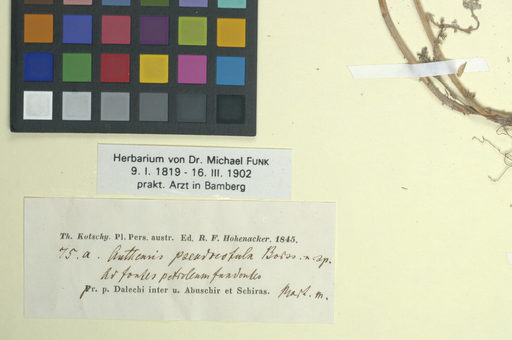 Herbarium von Dr. Michael FUNK
9. I. 1819 - 16. III. 1902
prakt. Arzt in Bamberg
Th. Kotschy. Pl. Pers. austr. Ed. R. F. Hohenacker, 1845.
75. a. Anthemis pseudocotula Boiss. n. sp.
Ad fontes petroleum fundentes
Pr. p. Dalechi inter u. Abuschir et Schiras. Mart. m.